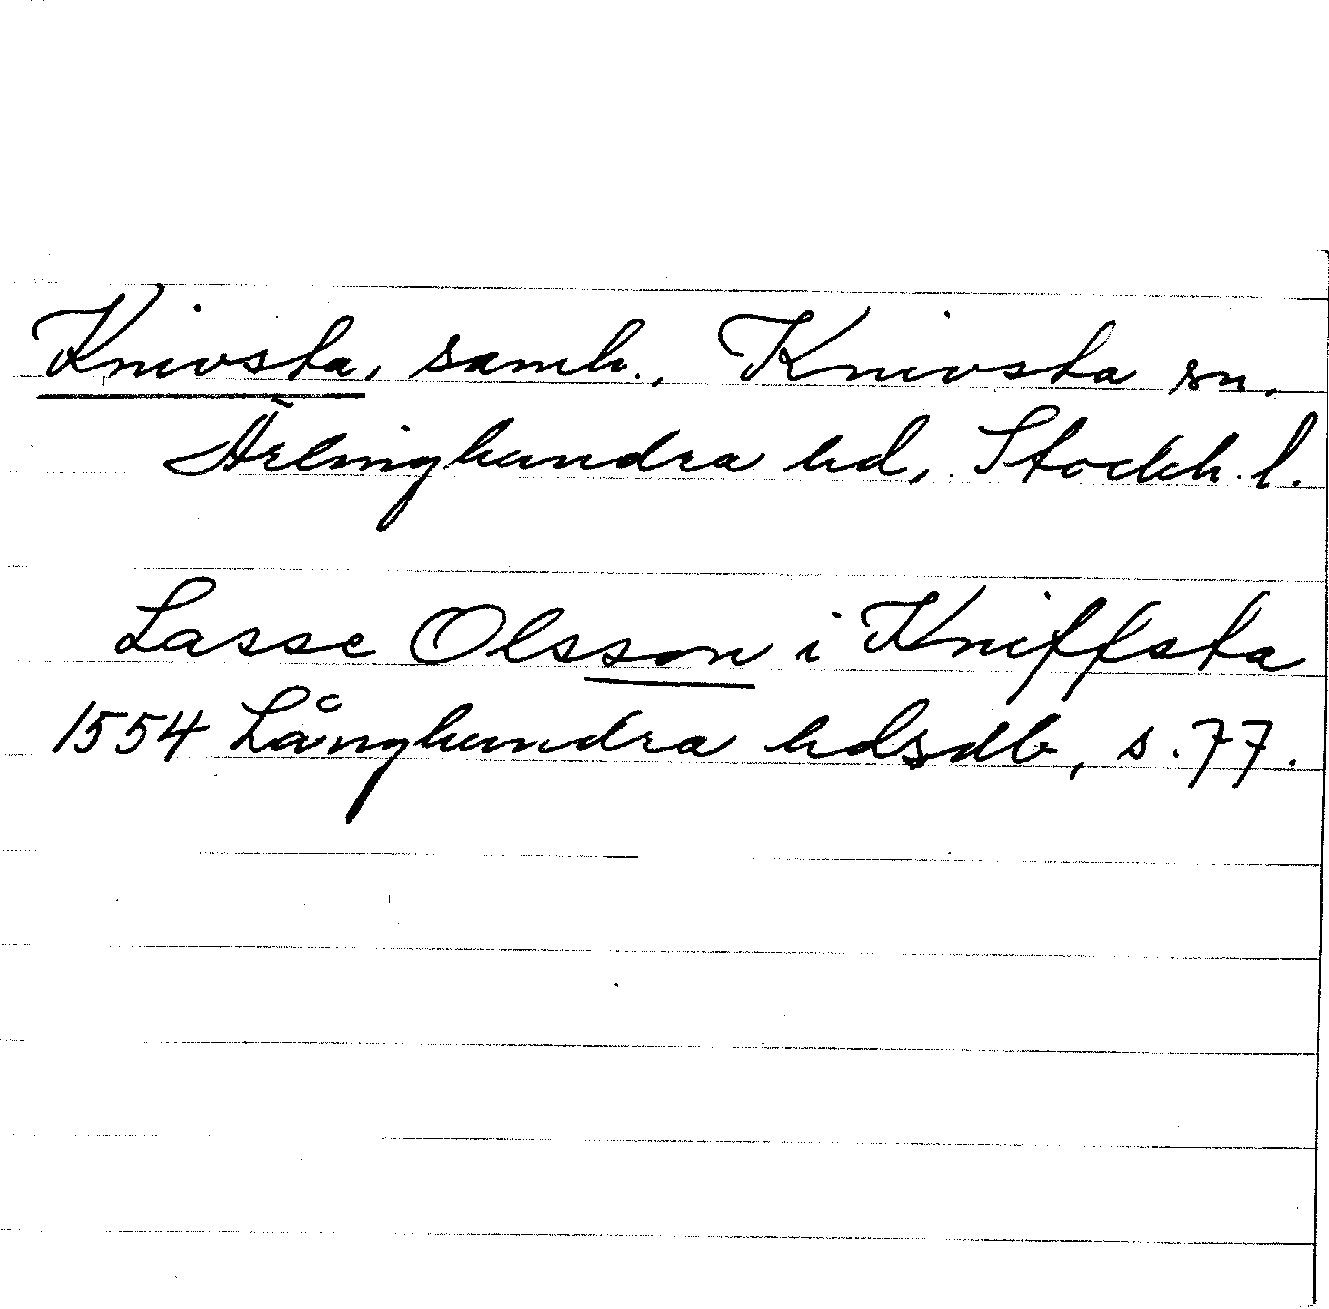 Knivsta, samh., Knivsta sn.
Ärlinghundra hd, Stockh. l.
Lasse Olsson i Kniffsta
1554 Långhundra hdsdb, s. 77.